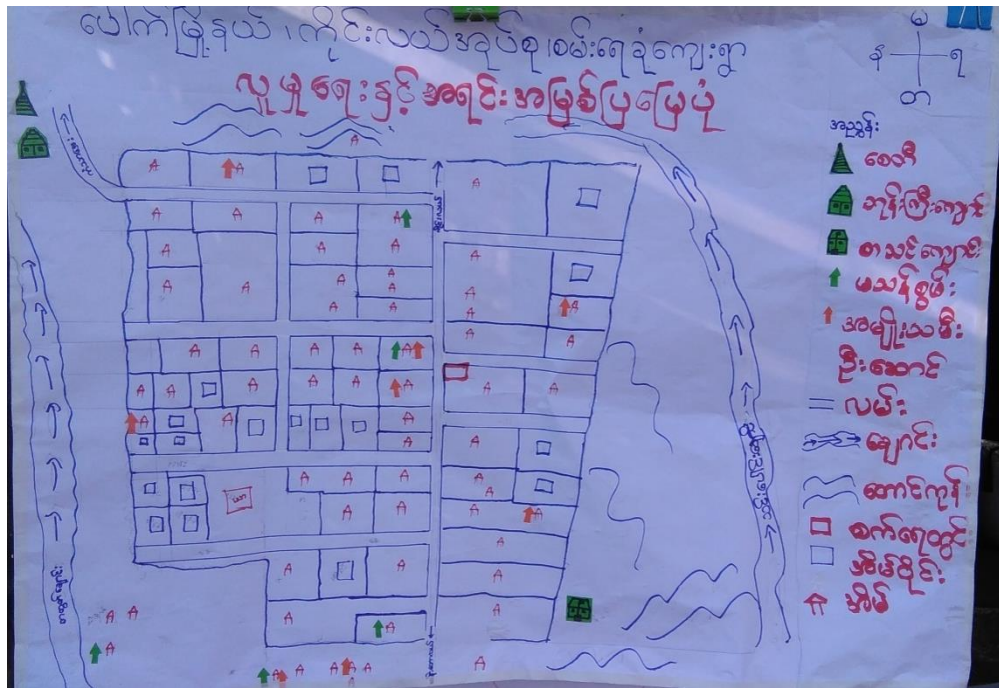 ပေါက်မြို့နယ်၊ ကိုင်းလယ်အုပ်စု၊ စမ်းရေခုံကျေးရွာ
လူမှုရေးနှင့်အရင်းအမြစ်ပြမြေပုံ
မ
န
ရ
တ
အညွှန်း
စေတီ
ဘုန်းကြီးကျောင်း
စာသင်ကျောင်း
မသန်စွမ်း
အမျိုးသမီး
ဦးဆောင်
လမ်း
ချောင်း
တောင်ကုန်း
စက်ရေတွင်း
အိမ်ဝိုင်း
အိမ်